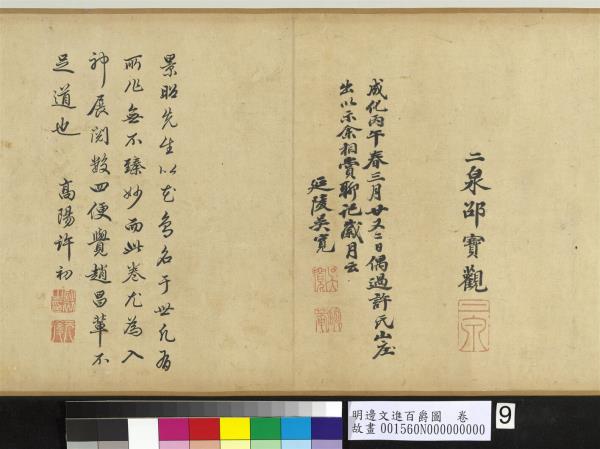 二泉邵寶觀
成化丙午春三月廿又二日偶過許氏山庄
出以示余相賞聊記歲月云
延陵吳寬
景昭先生以花鳥名于世凡有
所作無不臻妙而此卷尤為入
神展閱數四便覺趙昌輩不
足道也 高陽許初
明邊文進百爵圖 卷
故畫 001560N000000000
9